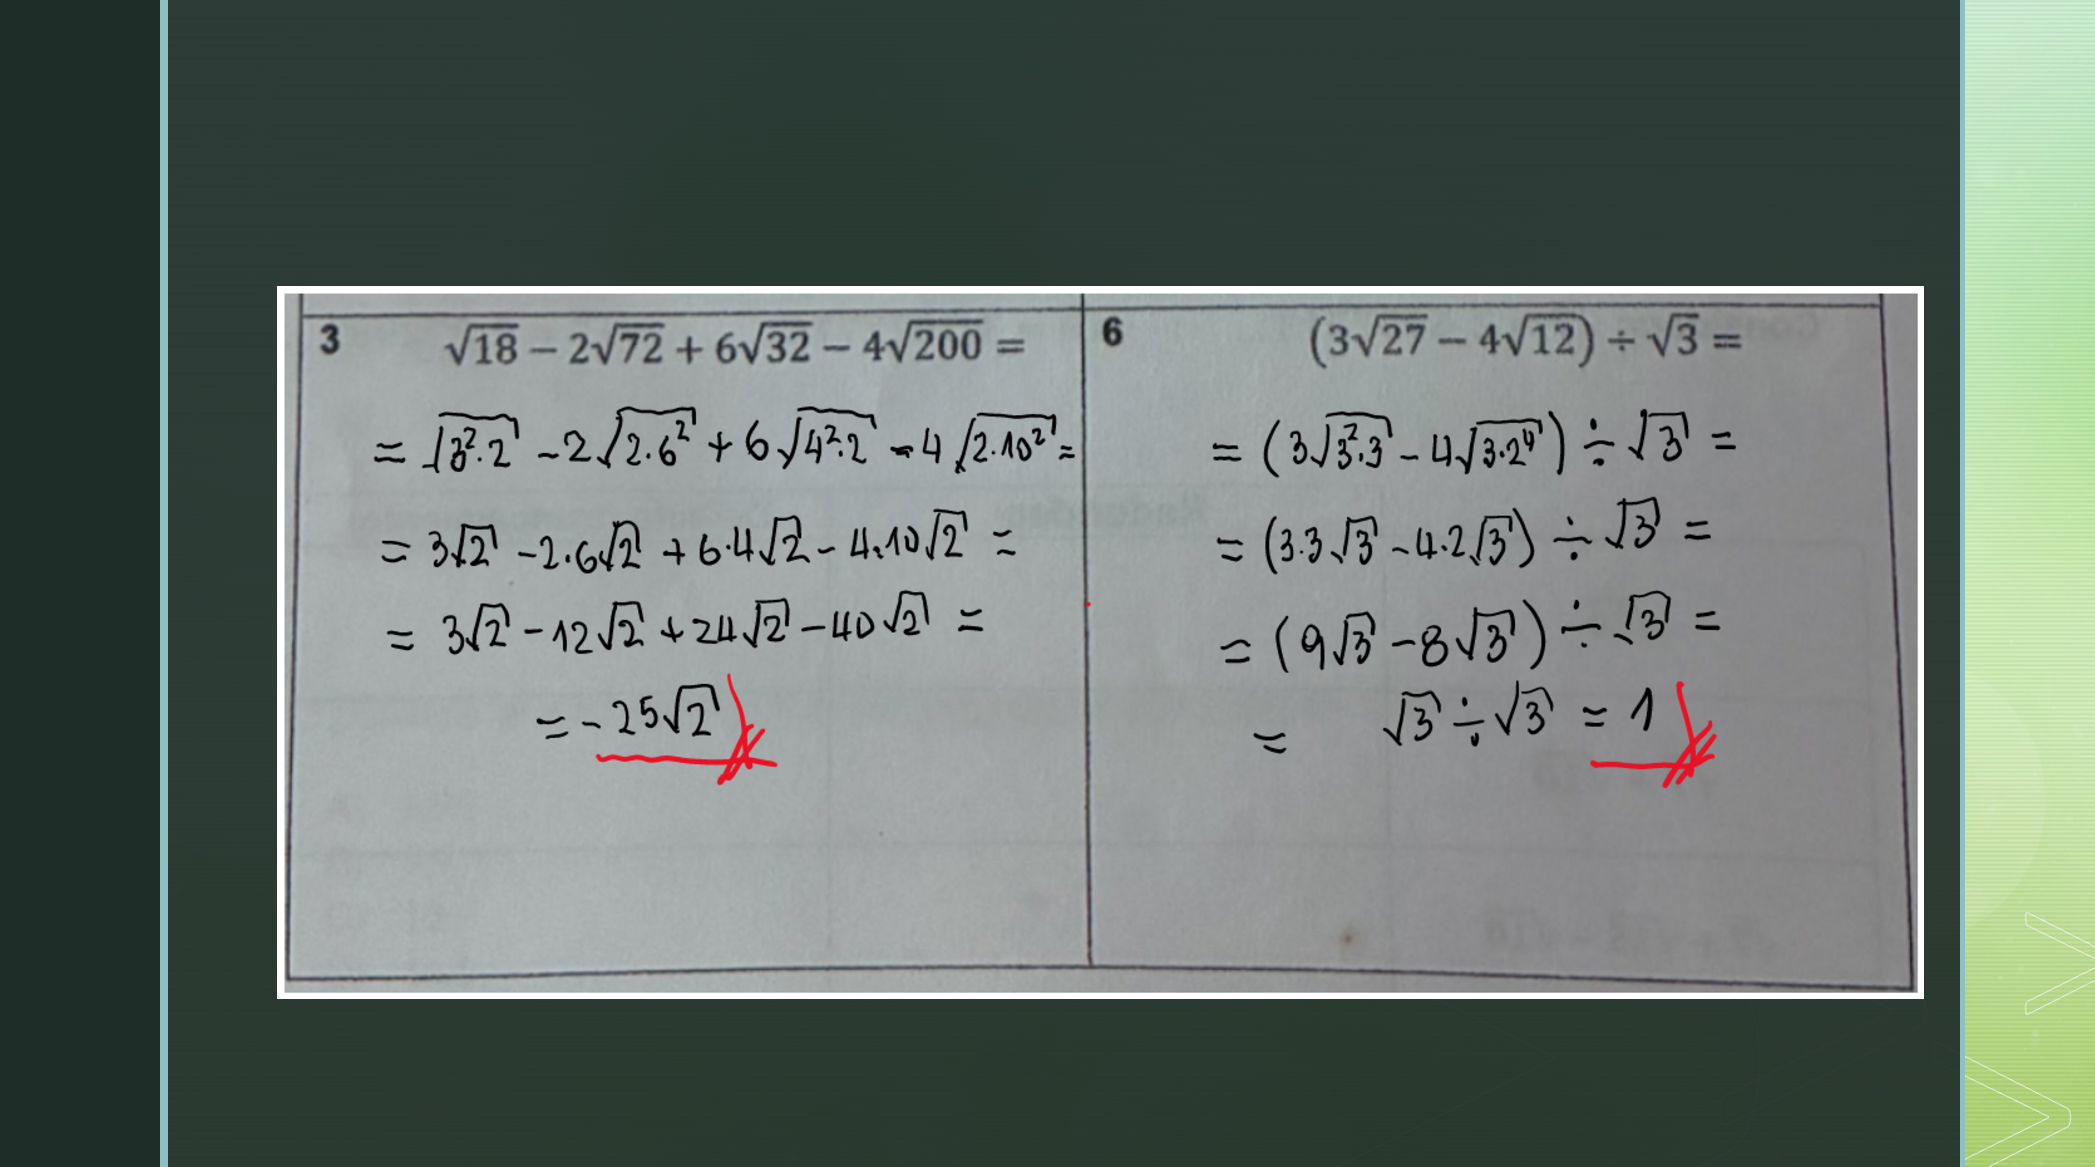 3 √18 − 2√72 + 6√32 − 4√200 =
= √3².2 − 2√2.6² + 6√4².2 − 4√2.10² =
= 3√2 − 2.6√2 + 6.4√2 − 4.10√2 =
= 3√2 − 12√2 + 24√2 − 40√2 =
= − 25√2
6 (3√27 − 4√12) ÷ √3 =
= (3√3².3 − 4√3.2⁴) ÷ √3 =
= (3.3√3 − 4.2√3) ÷ √3 =
= (9√3 − 8√3) ÷ √3 =
= √3 ÷ √3 = 1